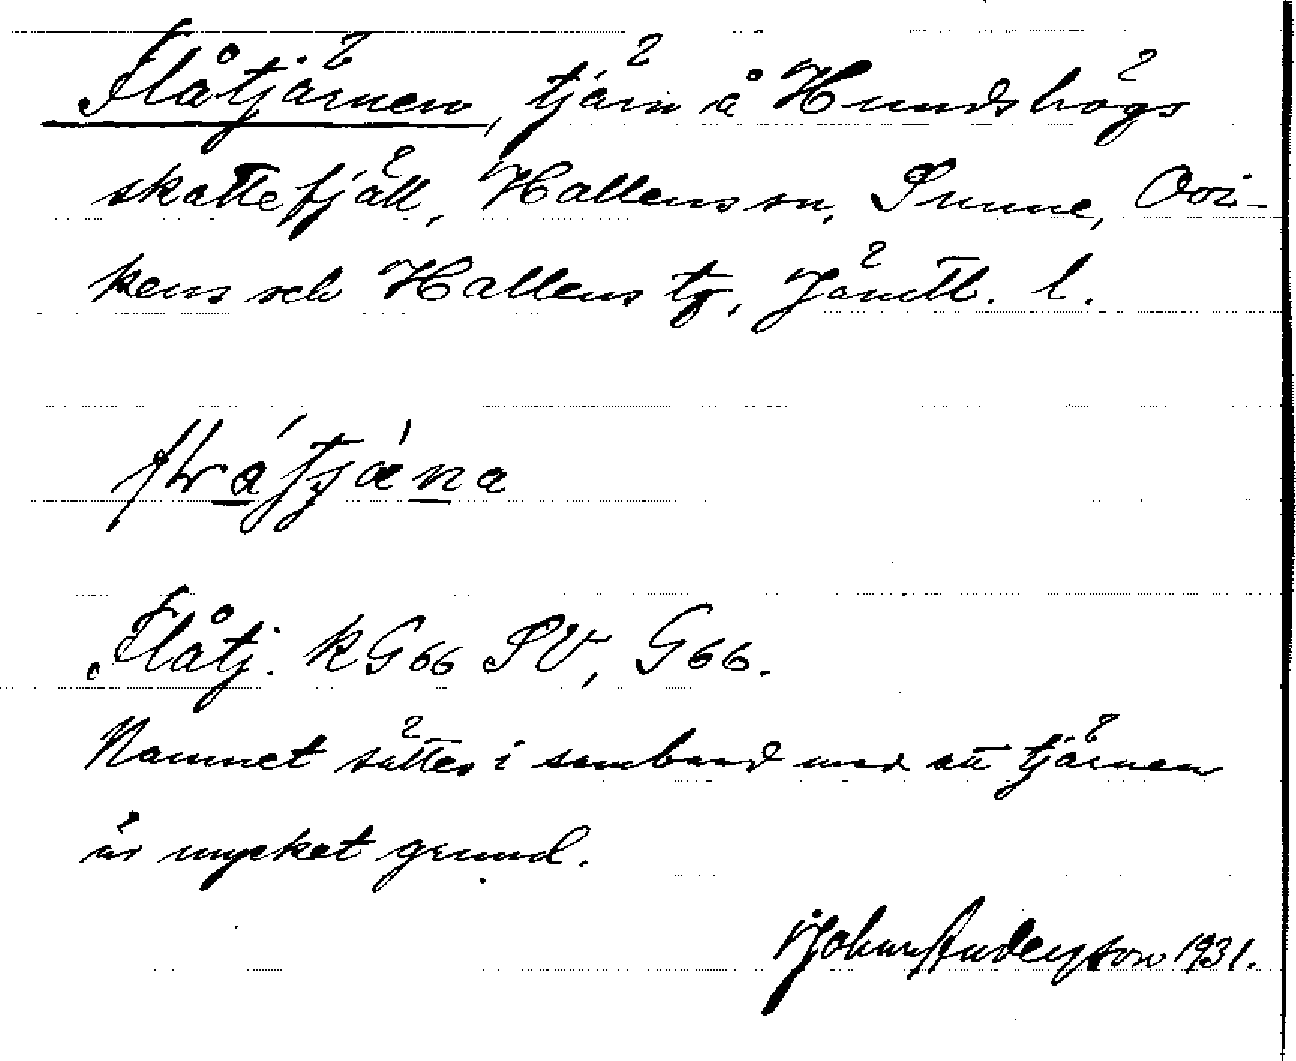 Flåtjärnen, tjärn å Hundshögs
skattefjäll, Hallens sn, Sunne, Ovi-
kens och Hallens tg, Jämtl. l.
Flåtj. kG66 SV, G66.
Namnet sättes i samband med att tjärnen
är mycket grund.
Johan Anderson 1931.